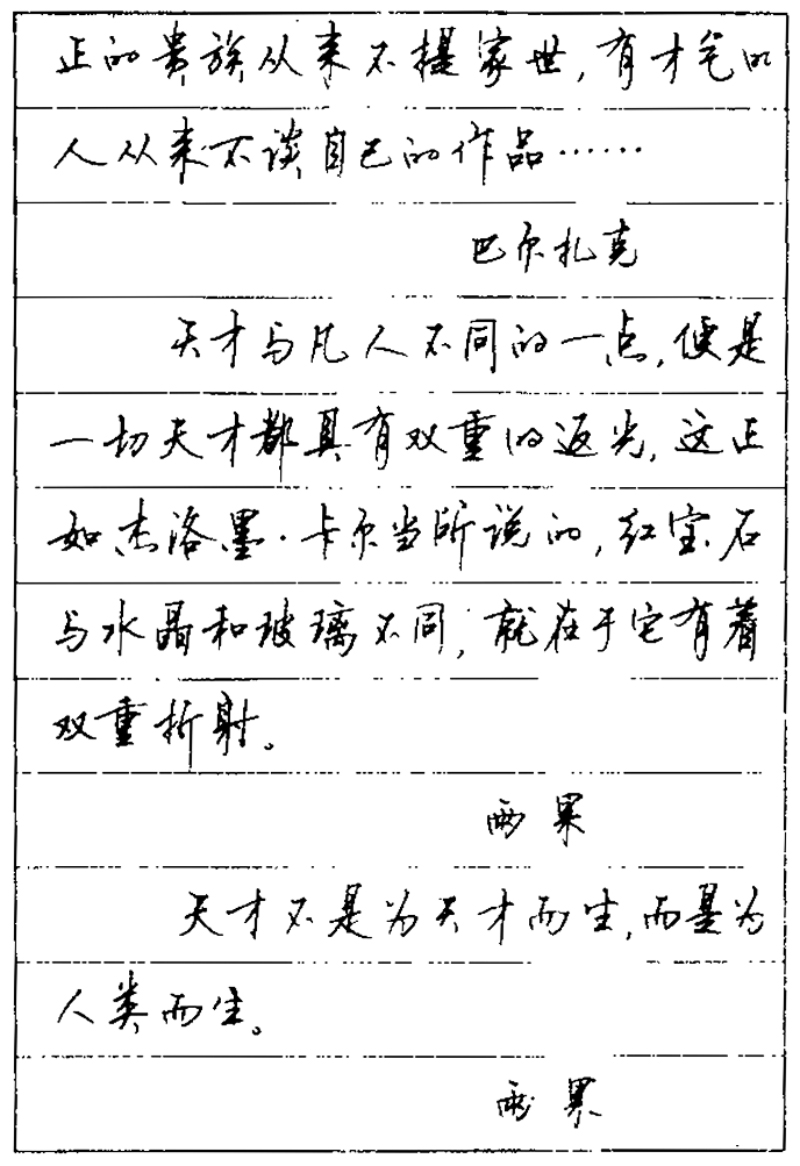 正的贵族从来不提家世，有才气的
人从来不谈自己的作品……
巴尔扎克
天才与凡人不同的一点，便是
一切天才都具有双重的返光，这正
如杰洛墨·卡尔当所说的，红宝石
与水晶和玻璃不同，就在于它有着
双重折射。
雨果
天才不是为天才而生，而是为
人类而生。
雨果